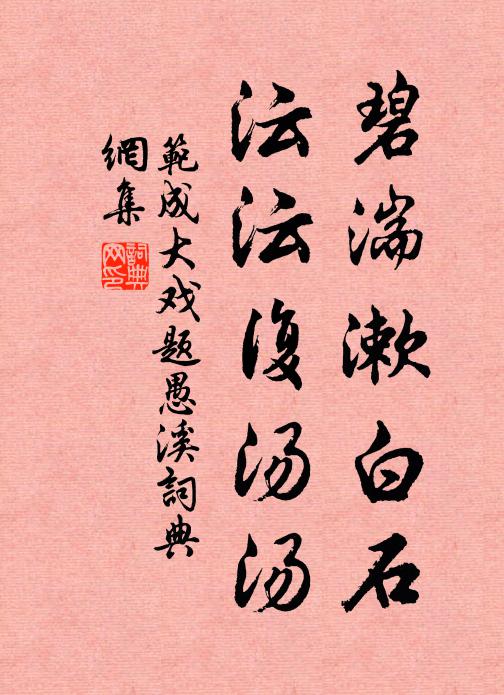 碧湍漱白石
沄沄復汤汤
範成大戏题愚溪詞典
網集
詞典
网印